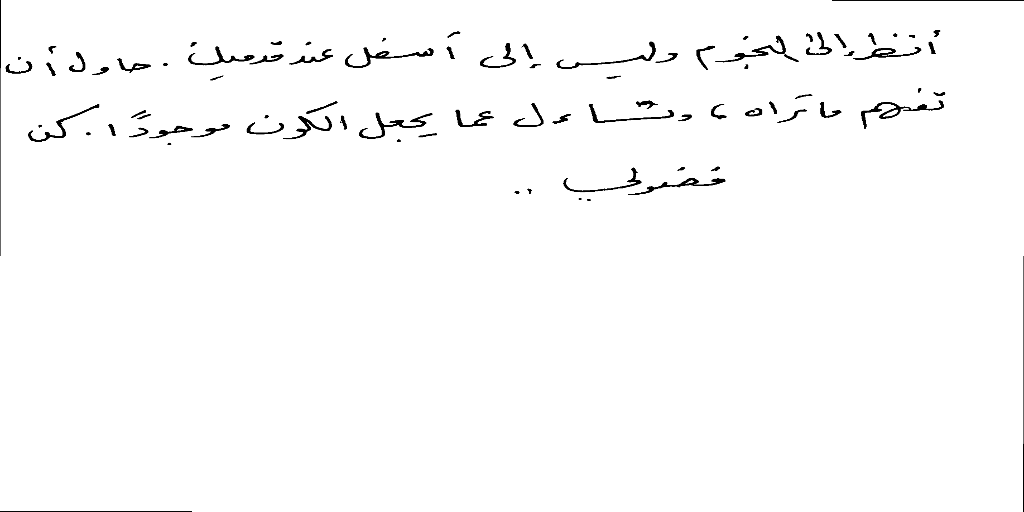 أنظر إلى النجوم وليس إلى أسفل عند قدميك . حاول أن
تفهم ما تراه ، وتساءل عما يجعل الكون موجودًا . كن
فضولي ..